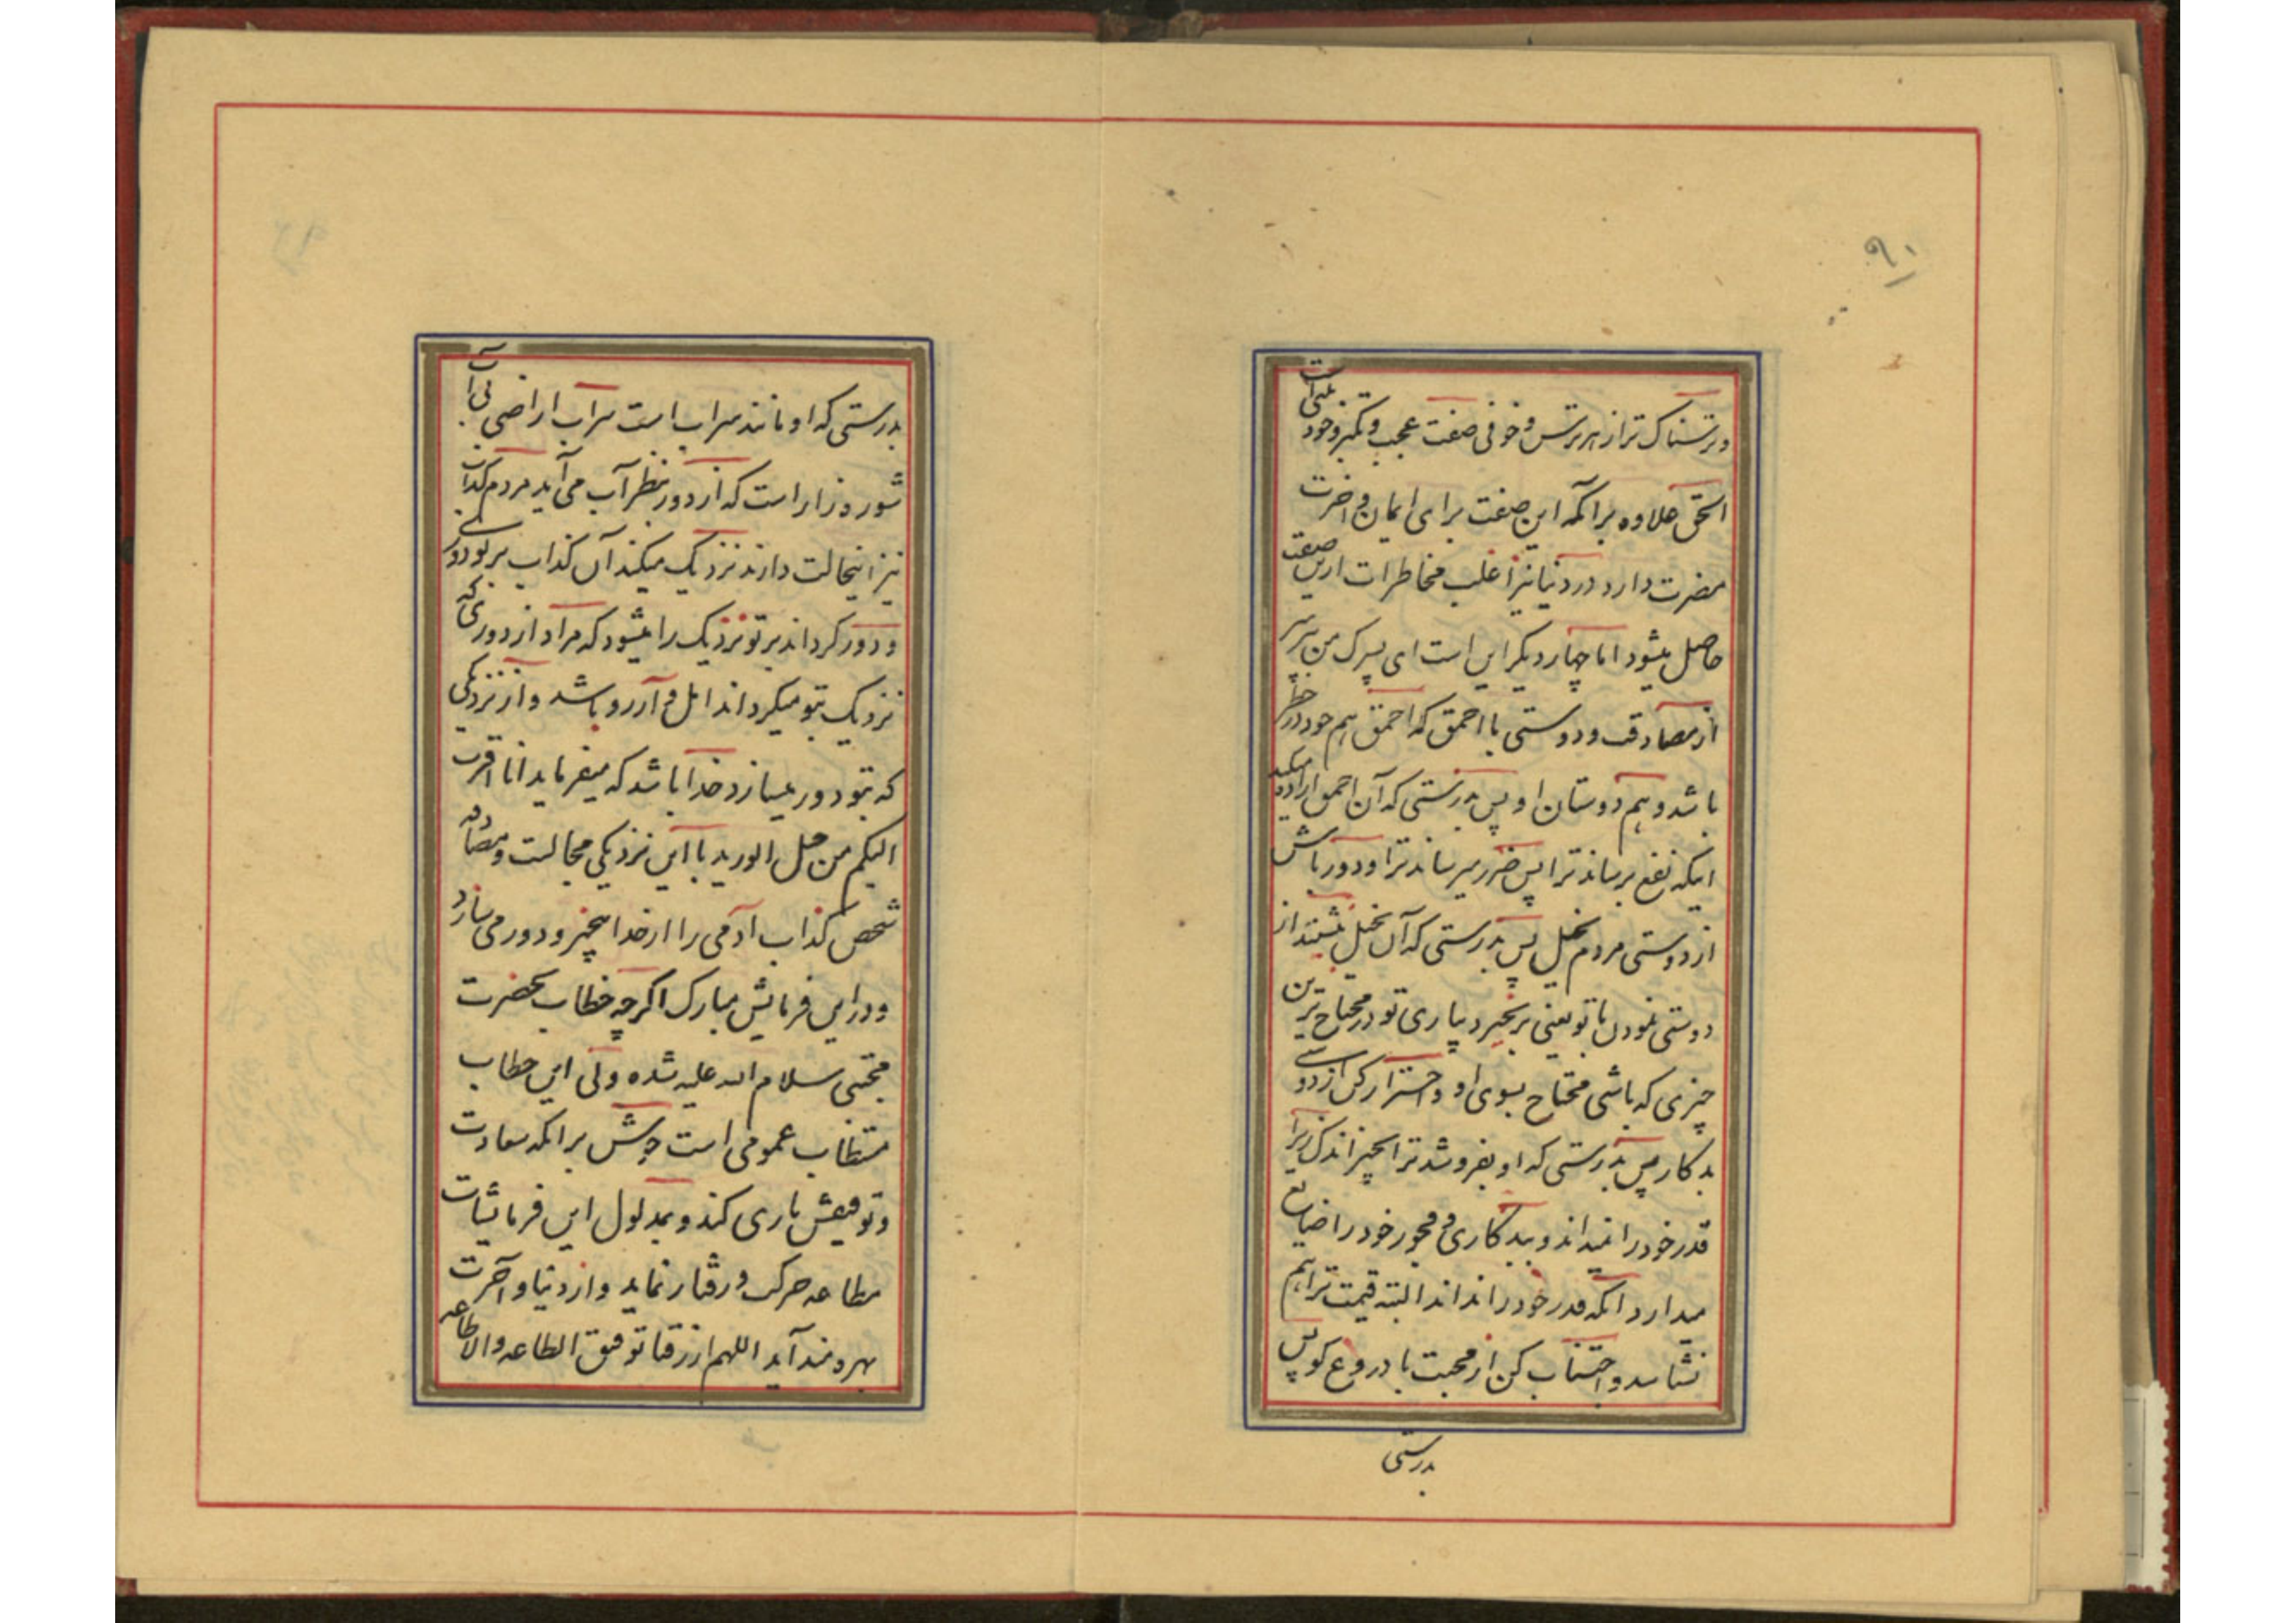 ۹۱
و ترسناک تر از هر ترس و خوفی صفت عجب و تکبر و خود بینی است
الحق علاوه بر آنکه این صفت برای ایمان و اخرت
مضرت دارد در دنیا نیز اغلب مخاطرات ازین صفت
حاصل میشود اما چهار دیگر این است ای پسرک من بپرهیز
از مصادقت و دوستی با احمق که احمق هم خود در خطر
باشد و هم دوستان او پس بدرستی که آن احمق اراده میکند
اینکه نفع برساند ترا پس ضرر میرساند ترا و دور باش
از دوستی مردم بخیل پس بدرستی که آن بخیل بنشیند از
دوستی نمودن با تو یعنی برنخیزد بیاری تو در محتاج ترین
چیزی که باشی محتاج بسوی او و احتراز کن از دوستی
بدکار پس بدرستی که او بفروشد ترا بچیز اندک زیرا
قدر خود را نمیداند و ببدکاری و فجور خود را ضایع
میدارد آنکه قدر خود را نداند البته قیمت ترا هم
نشناسد و اجتناب کن از محبت با دروغ گو پس
بدرستی
بدرستی که او مانند سراب است سراب اراضی بی آب
شوره زار است که از دور بنظر آب می آید مردم کذاب
نیز اینحالت دارند نزدیک میکند آن کذاب بر تو دور را
و دور کرداند بر تو نزدیک را میشود که مراد از دوری که
نزدیک بتو میکرداند امل و آرزو باشد و از نزدیکی
که بتو دور میسازد خدا باشد که میفرماید انا اقرب
الیکم من حبل الورید با این نزدیکی مجالست و مصادقه
شخص کذاب آدمی را از خدا بیخبر و دور می سازد
و در این فرمایش مبارک اگرچه خطاب بحضرت
مجتبی سلام الله علیه شده ولی این خطاب
مستطاب عمومی است خوش بر آنکه سعادت
و توفیقش یاری کند و بمدلول این فرمایشات
مطاعه حرکت و رفتار نماید و از دنیا و آخرت
بهره مند آید اللهم ارزقنا توفیق الطاعه والاطاعه